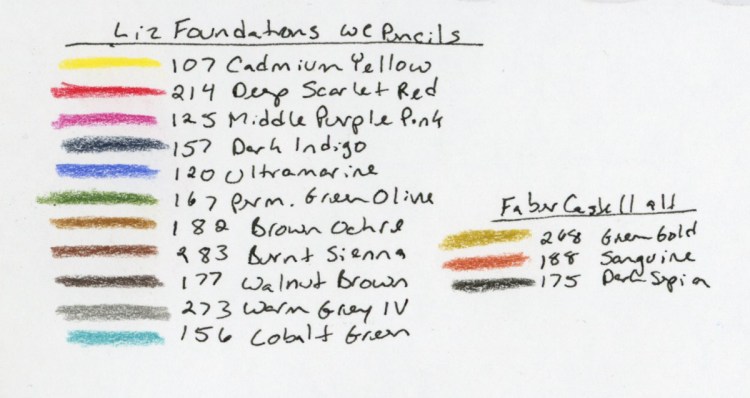 Liz Foundations WC Pencils
107 Cadmium Yellow
214 Deep Scarlet Red
125 Middle Purple Pink
157 Dark Indigo
120 Ultramarine
167 perm. Green Olive
182 Brown Ochre
283 Burnt Sienna
177 Walnut Brown
273 Warm Grey IV
156 Cobalt Green
Faber Castell alt
268 Green Gold
188 Sanguine
175 Dark Sepia